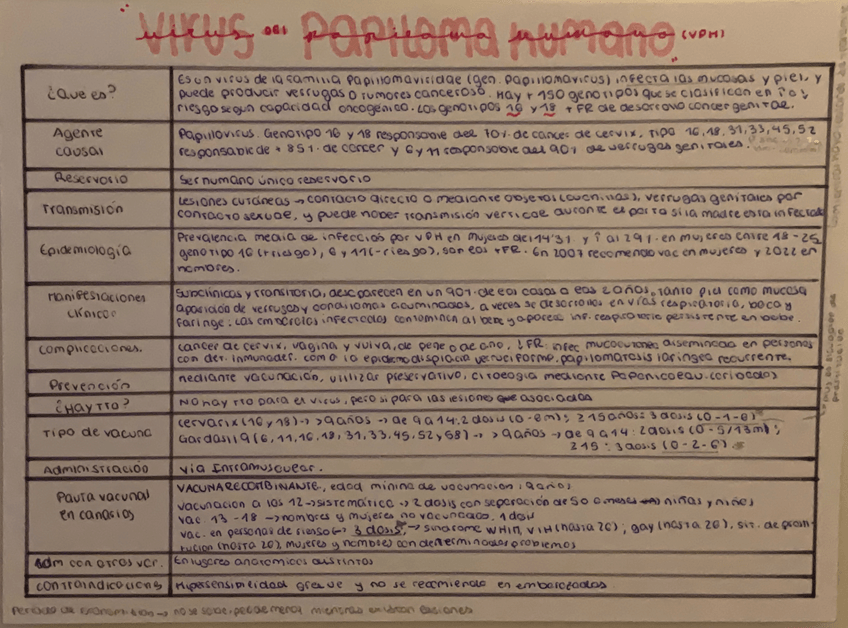 VIRUS DEL PAPILOMA HUMANO (VPH)
¿Que es?
Es un virus de la familia Papillomaviridae (gen. Papilomavirus) infecta las mucosas y piel, y
puede producir verrugas o tumores cancerosos. Hay + 150 genotipos que se clasifican en ↑ o ↓
riesgo segun capacidad oncogénica. Los genotipos 16 y 18 + FR de desarrollo cancer genital.
Agente causal
Papillovirus. Genotipo 16 y 18 responsable del 70% de cancer de cervix, tipo 16, 18, 31, 33, 45, 52
responsable de + 85% de cancer y 6 y 11 responsable del 90% de verrugas genitales.
Reservorio
Ser humano único reservorio
Transmisión
Lesiones cutáneas → contacto directo o mediante objetos, verrugas genitales por
contacto sexual, y puede haber transmisión vertical durante el parto si la madre esta infectada
Epidemiología
Prevalencia media de infeccios por VPH en mujeres del 14'3% y ↑ al 29% en mujeres entre 18-25
genotipo 16 (+ riesgo), 6 y 11 (- riesgo), son los + FR. En 2007 recomendo vac en mujeres y 2022 en
hombres.
Manifestaciones clínicas
Subclínicos y transitoria, desaparecen en un 90% de los casos a los 2 años, tanto piel como mucosa
aparición de verrugas y condilomas acuminados, a veces se desarrollan en vías respiratoria, boca y
faringe. Las embarazadas infectadas contaminan al bebe y aparece inf. respiratorio persistente en bebe.
Complicaciones.
cancer de cervix, vagina y vulva, de pene o de ano, ↓FR: infec mucocutánea diseminada en personas
con det. inmunader. como la epidermodisplacia verruciforme, papilomatosis laringea recurrente.
Prevención
mediante vacunación, utilizar preservativo, citología mediante Papanicolau
¿Hay TTO?
No hay TTO para el virus, pero si para las lesiones asociadas
Tipo de vacuna
Cervarix (16 y 18) → >9 años → de 9 a 14: 2 dosis (0-6m); ≥15 años: 3 dosis (0-1-6)
Gardasil 9 (6, 11, 16, 18, 31, 33, 45, 52 y 58) → >9 años → de 9 a 14: 2 dosis (0-5/13m);
≥15: 3 dosis (0-2-6)
Administración
via Intramuscular.
Pauta vacunal en canarias
VACUNA RECOMBINANTE, edad minima de vacunacion: 9 años
Vacunacion a los 12 → sistemática → 2 dosis con separación de 5 o 6 meses → niñas y niños
vac. 13 - 18 → hombres y mujeres no vacunados. 1 dosis
vac. en personas de riesgo → 3 dosis → sindrome WHIM, VIH (hasta 26); gay (hasta 26), sit. de prosti-
tucion (hasta 26), mujeres y hombres con determinados problemas
Adm con otros vcr.
En lugares anatomicos distintos
Contraindicacions
Hipersensibilidad grave y no se recomienda en embarazadas
Periodo de transmisión → no se sabe, puede menos mientras existan lesiones